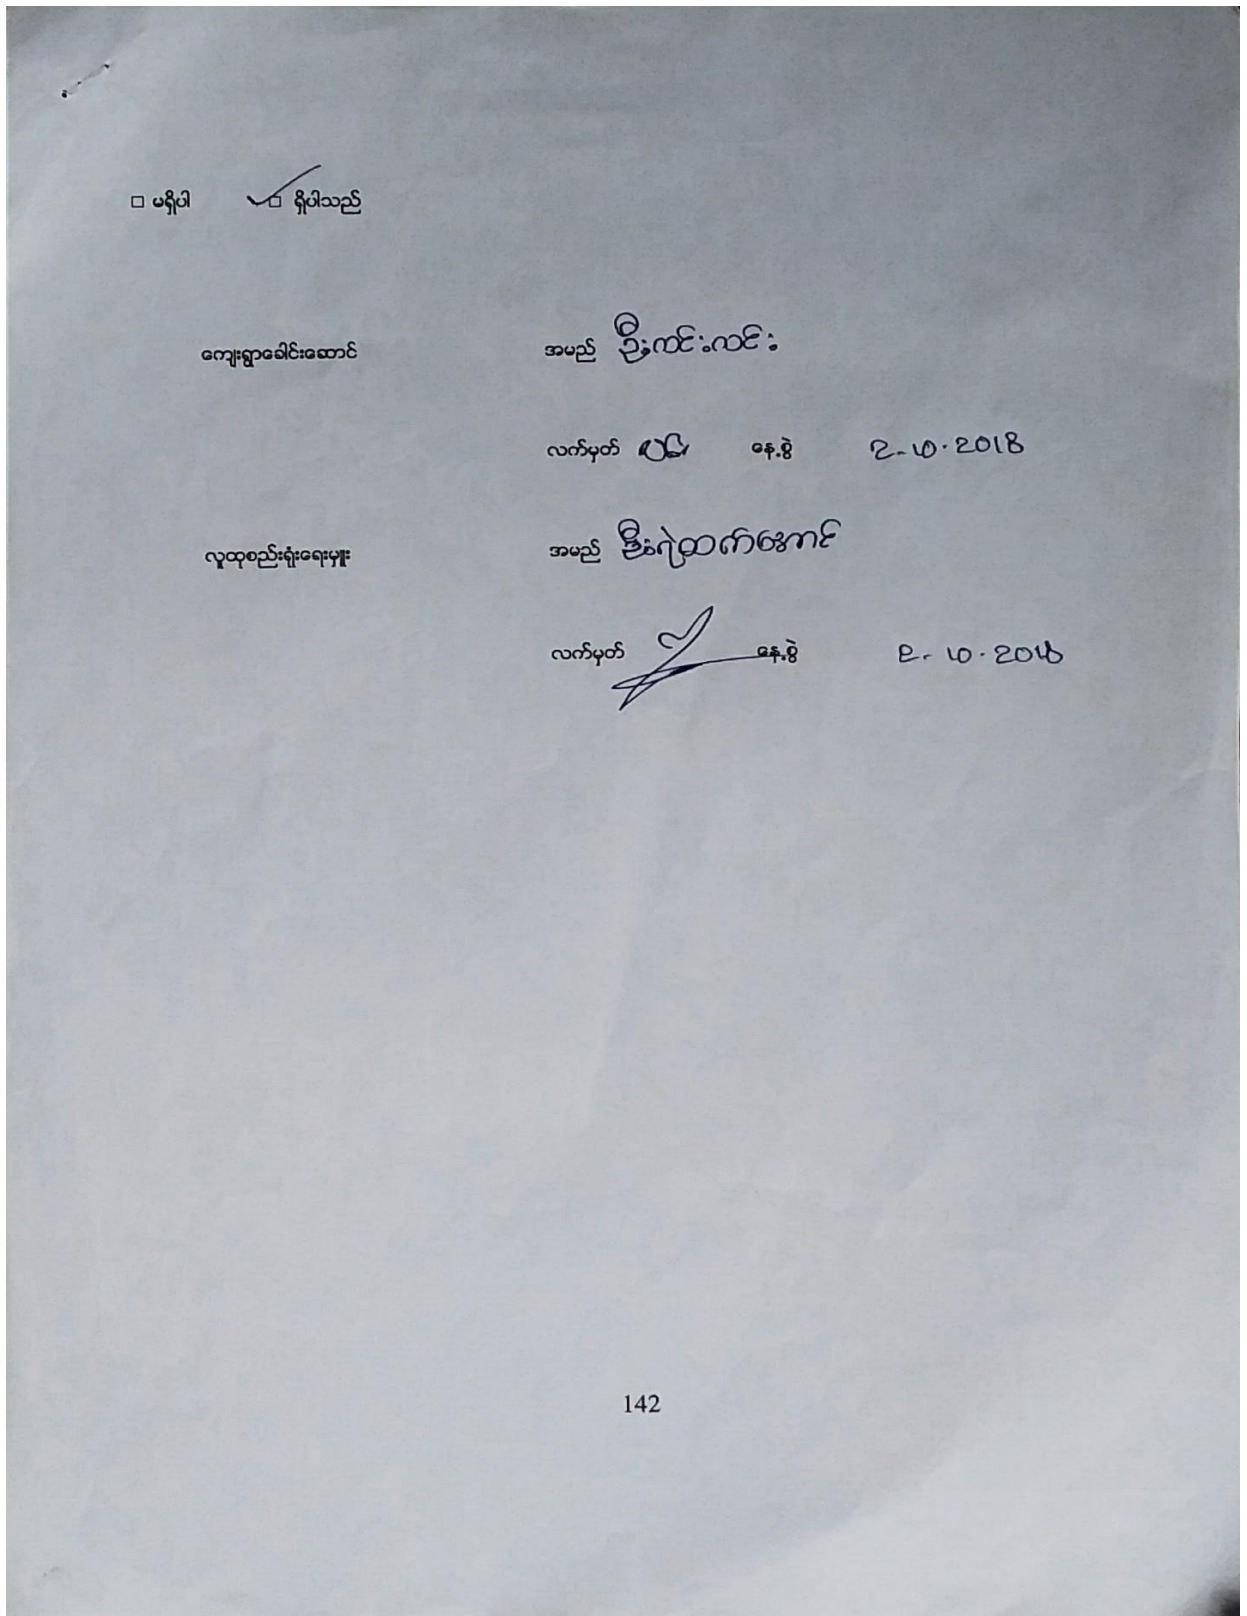 □ မရှိပါ □ ရှိပါသည်
ကျေးရွာခေါင်းဆောင် အမည် ဦးကင်းကင်း
လက်မှတ် နေ့စွဲ 2-10.2018
လူထုစည်းရုံးရေးမှူး အမည် ဦးရဲထက်အောင်
လက်မှတ် နေ့စွဲ 2-10.2018
142